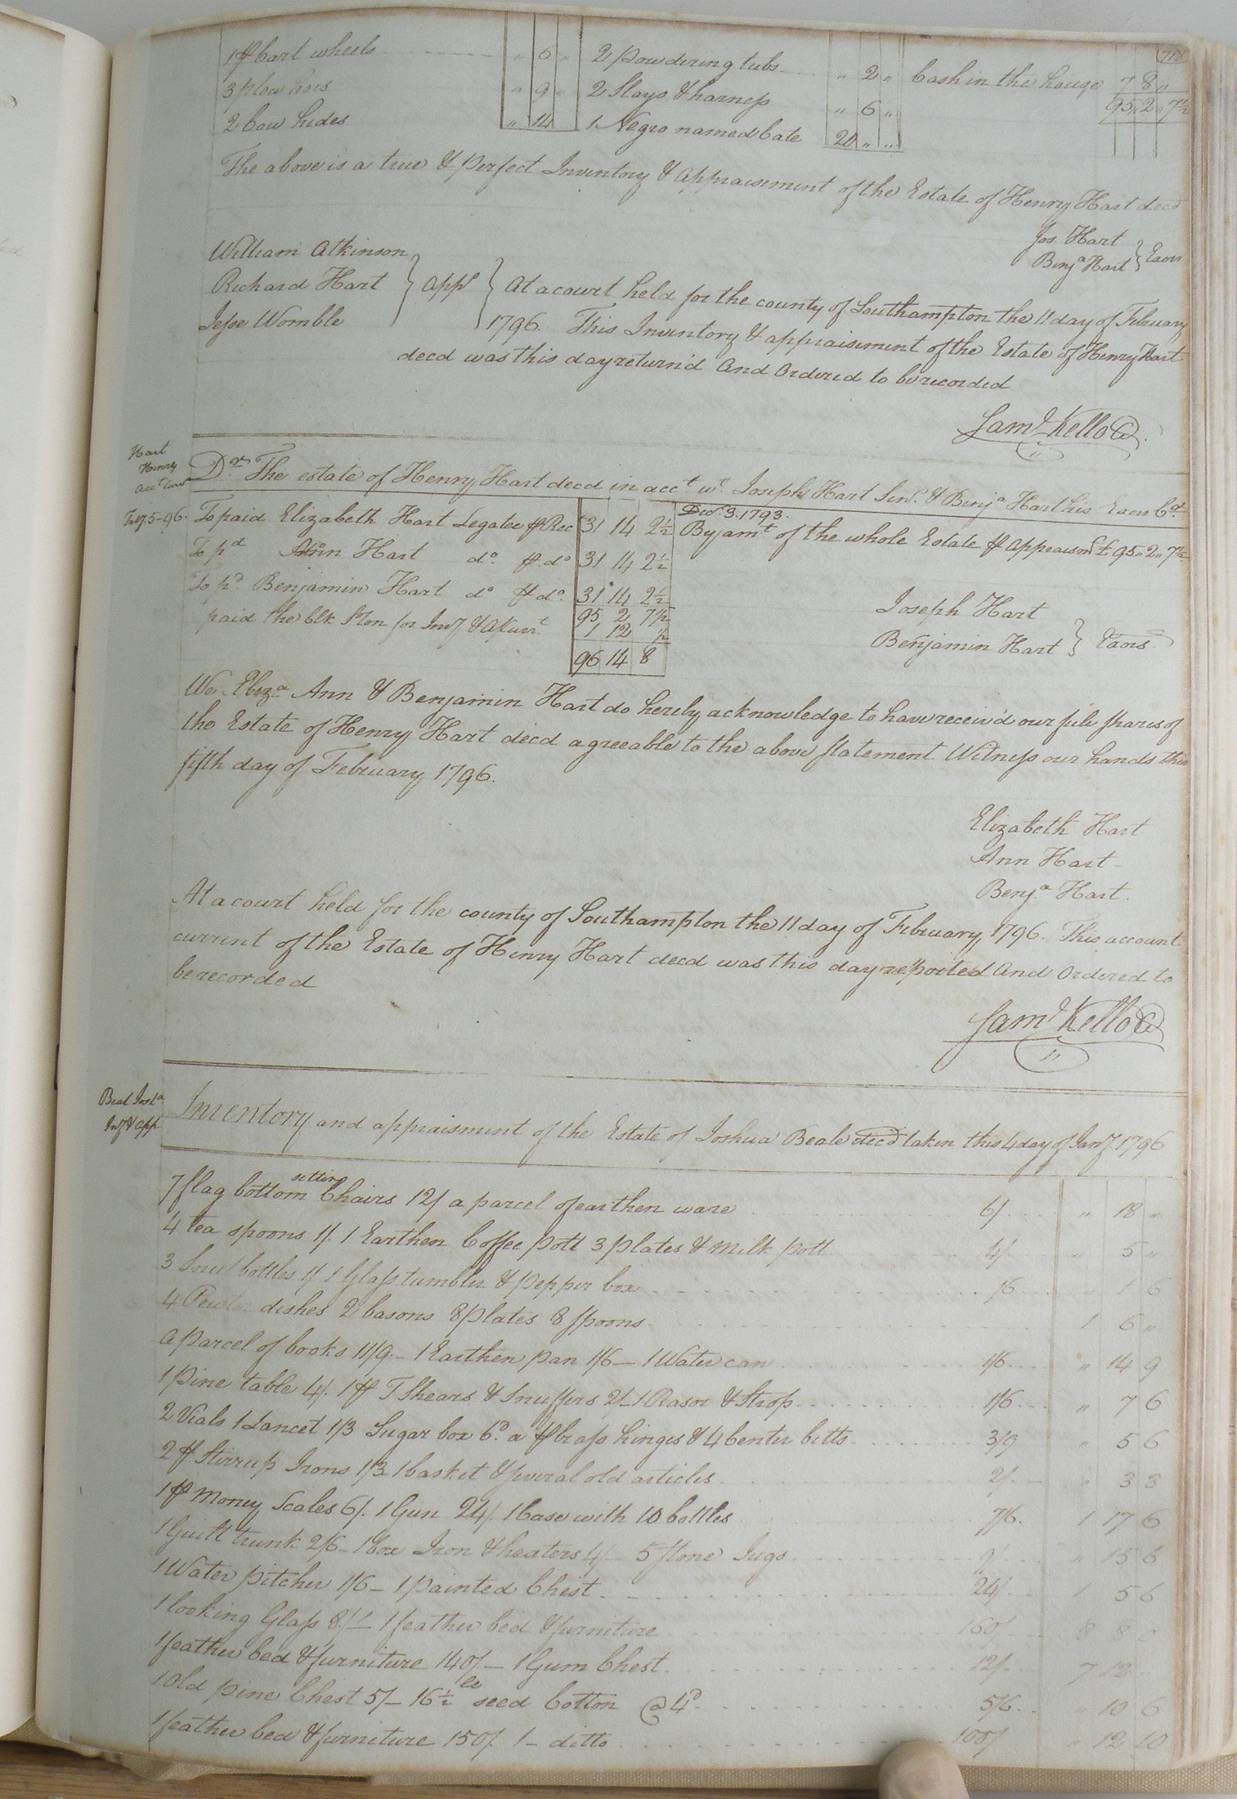 1 pr Cart wheels " 6 " 2 powdering tubs " 2 " Cash in the house 7 8 "
3 plow hoes " 9 " 2 Slays & harness " 6 " 95 " 2 " 7½
2 Cow hides " 14 1 Negro named Cate 20 " "
The above is a true & perfect Inventory & appraisement of the Estate of Henry Hart decd
Jos. Hart
Benja Hart } Exors
William Atkinson
Richard Hart } appr } At a court held for the county of Southampton the 11 day of February
Jesse Womble 1796 This Inventory & appraisement of the Estate of Henry Hart
decd was this day return'd And Ordered to be recorded
Saml Kello C
Hart
Henry
acct curr
Dr The estate of Henry Hart decd in acct wt Joseph Hart Senr & Benja Hart his Exors Cr
Feby 5-96 To paid Elizabeth Hart Legatee pr Rec 31 14 2½
Decr 3. 1793.
By amt of the whole Estate pr appraismt £95 " 2 " 7½
To pd Ann Hart do pr do 31 14 2½
To pd Benjamin Hart do pr do 31 14 2½
95 2 7½
paid the Clk for Invy & acurt 1 12 ½
96 14 8
Joseph Hart
Benjamin Hart } Exors
We Eliza Ann & Benjamin Hart do hereby acknowledge to have receiv'd our full shares of
the Estate of Henry Hart decd agreeable to the above statement Witness our hands this
fifth day of February 1796.
Elizabeth Hart
Ann Hart
Benja Hart.
At a court held for the county of Southampton the 11 day of February 1796 This account
current of the Estate of Henry Hart decd was this day reported And Ordered to
be recorded
Saml Kello C
Beal Josha
Invy & app
Inventory and appraisment of the Estate of Joshua Beale decd taken this 4 day of Jany 1796
7 flag bottom setting Chairs 12/ a parcel of earthen ware 6/ " 18 "
4 tea spoons 1/. 1 Earthen Coffee pott 3 plates & milk pott 4/ " 5 "
3 bottles 1/ 1 Glass tumbler & pepper box /6 " 1 6
4 Pewter dishes 2 basons 8 plates 8 spoons 1 6 "
A parcel of books 11/9 - 1 Earthen pan 1/6 - 1 Water can 1/6 " 14 9
1 pine table 4/. 1 pr T Shears & Snuffers 2/- 1 Rasor & Strop 1/6 " 7 6
2 Vials 1 Lancet 1/3 Sugar box 6d a pr brass hinges & 4 Center bitts 3/9 " 5 6
2 pr Stirrup Irons 1/3 1 basket & several old articles 2/ " 3 3
1 pr money Scales 6/. 1 Gun 24/. 1 Case with 10 bottles 7/6. 1 17 6
1 Guilt trunk 2/6 - 1 Box Iron & heaters 4/ - 5 stone Jugs 9/ " 15 6
1 Water pitcher 1/6 - 1 painted Chest 24/ 1 5 6
1 looking Glass 8/ - 1 feather bed & furniture 160/ 8 8 0
1 feather bed & furniture 140/ - 1 Gum Chest 12/ 7 12
1 Old pine Chest 5/ - 16½ lb seed Cotton @ 4d 5/6 " 10 6
1 feather bed & furniture 150/. 1 - ditto 100/ " 12 10